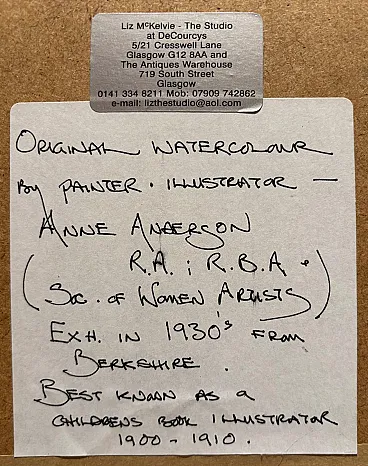 Liz McKelvie - The Studio
at DeCourcys
5/21 Cresswell Lane
Glasgow G12 8AA and
The Antiques Warehouse
719 South Street
Glasgow
0141 334 8211 Mob: 07909 742862
e-mail: lizthestudio@aol.com
ORIGINAL WATERCOLOUR
By PAINTER . ILLUSTRATOR —
ANNE ANDERSON
R.A. ; R.B.A.
(Soc. of Women Artists)
EXH. IN 1930s FROM
BERKSHIRE .
BEST KNOWN AS A
CHILDRENS BOOK ILLUSTRATOR
1900 - 1910 .